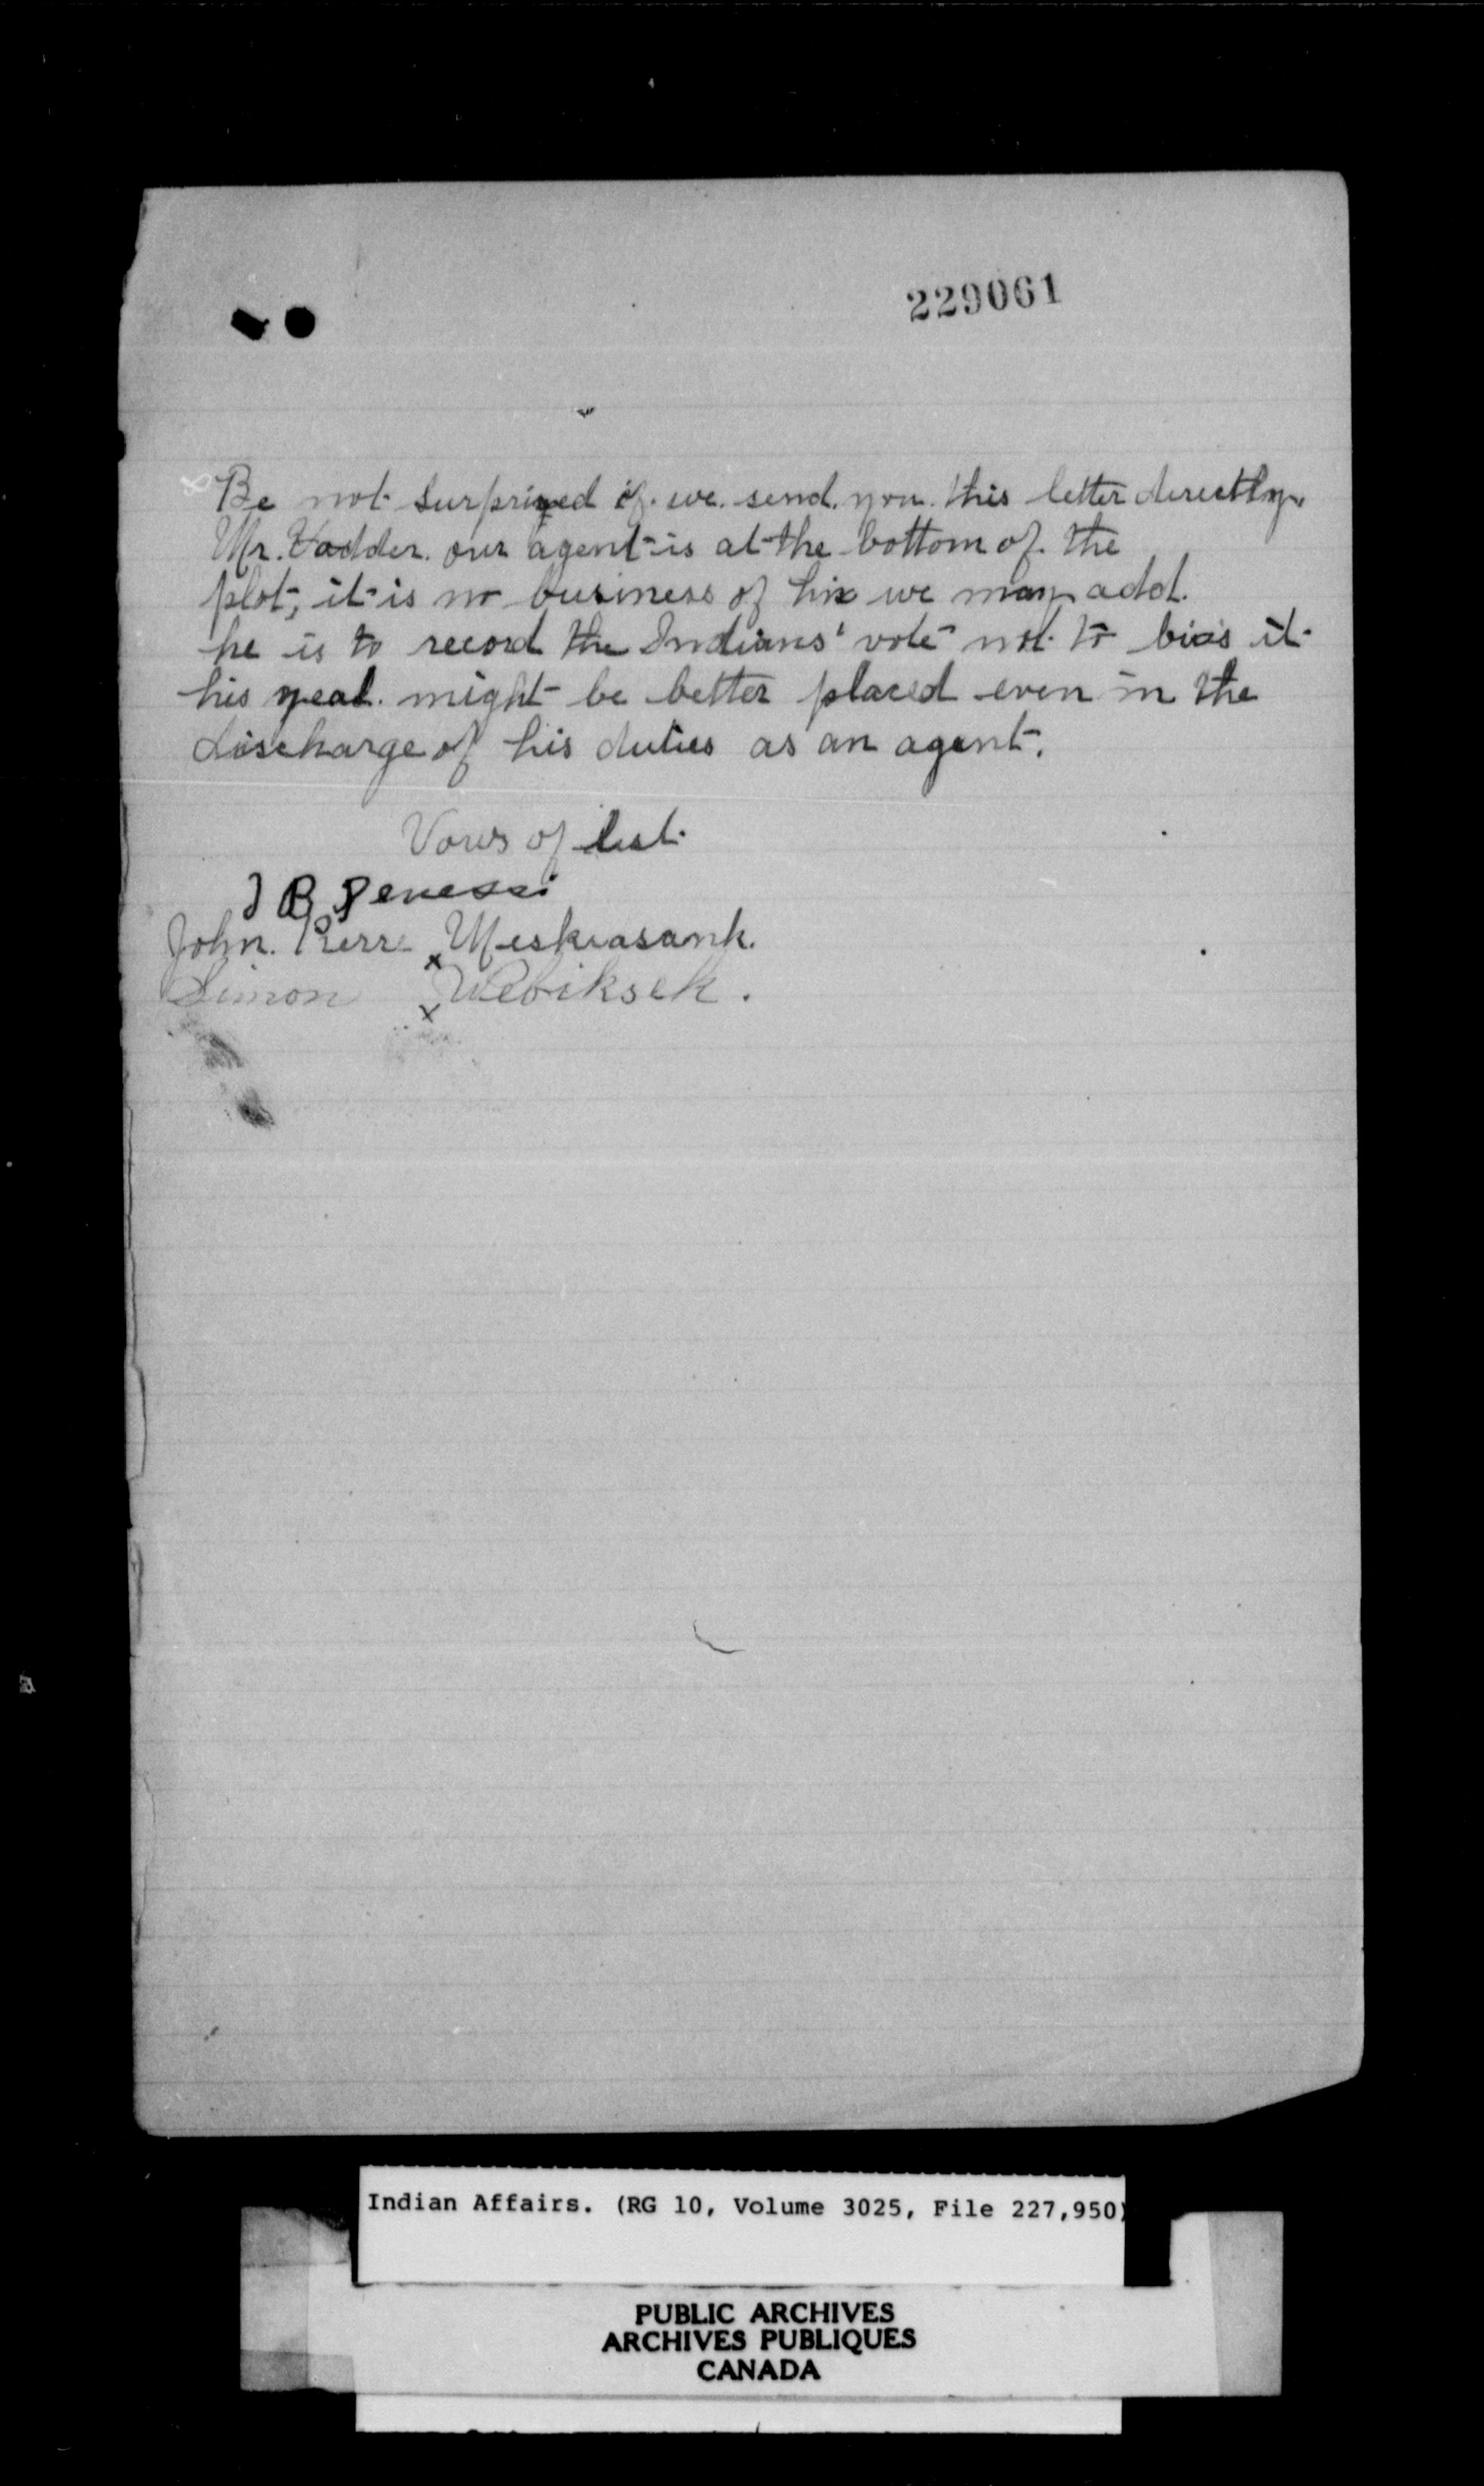 229061
Be not surprized if we send you this letter directly
Mr. Vadder our agent is at the bottom of the
plot, it is no business of his we may add.
he is to record the Indians' vote not to bias it
his zeal might be better placed even in the
discharge of his duties as an agent.
Vours of list
J B Penessi
John. Pierre x Meskiasank.
Simon x Webiksek.
Indian Affairs. (RG 10, Volume 3025, File 227,950)
PUBLIC ARCHIVES
ARCHIVES PUBLIQUES
CANADA